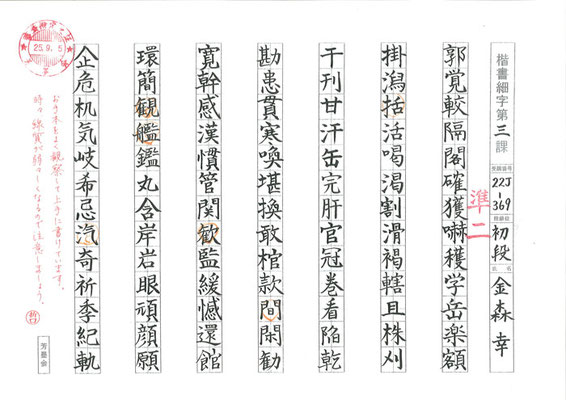 楷書細字第三課
受験番号
22J-369
段級位
初段
氏名
金森幸
準二
郭覚較隔閣確獲嚇穫学岳楽額
掛潟括活喝渇割滑褐轄且株刈
干刊甘汗缶完肝官冠巻看陥乾
勘患貫寒喚堪換敢棺款間閑勧
寛幹感漢慣管関歓監緩憾還館
環簡観艦鑑丸含岸岩眼頑顔願
企危机気岐希忌汽奇祈季紀軌
お手本をよく観察して上手に書けています。
時々線質が弱々しくなるので注意しましょう。
25.9.5
芳藝会